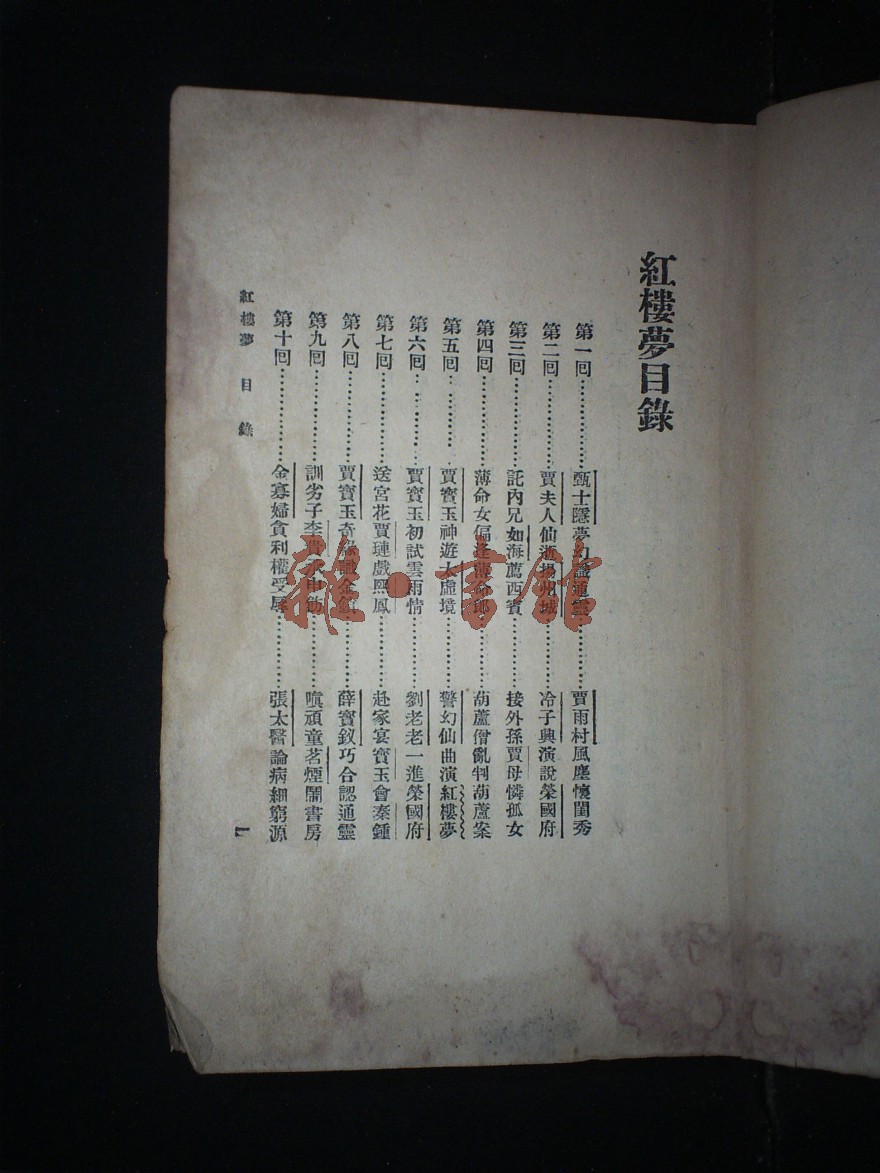 紅樓夢目錄
第一回……………甄士隱夢幻識通靈……………賈雨村風塵懷閨秀
第二回……………賈夫人仙逝揚州城……………冷子興演說榮國府
第三回……………託內兄如海薦西賓……………接外孫賈母憐孤女
第四回……………薄命女偏逢薄命郎……………葫蘆僧亂判葫蘆案
第五回……………賈寶玉神遊太虛境……………警幻仙曲演紅樓夢
第六回……………賈寶玉初試雲雨情……………劉老老一進榮國府
第七回……………送宮花賈璉戲熙鳳……………赴家宴寶玉會秦鍾
第八回……………賈寶玉奇緣識金鎖……………薛寶釵巧合認通靈
第九回……………訓劣子李貴承申飭……………嗔頑童茗煙鬧書房
第十回……………金寡婦貪利權受辱……………張太醫論病細窮源
紅樓夢 目錄 一
雜·書館